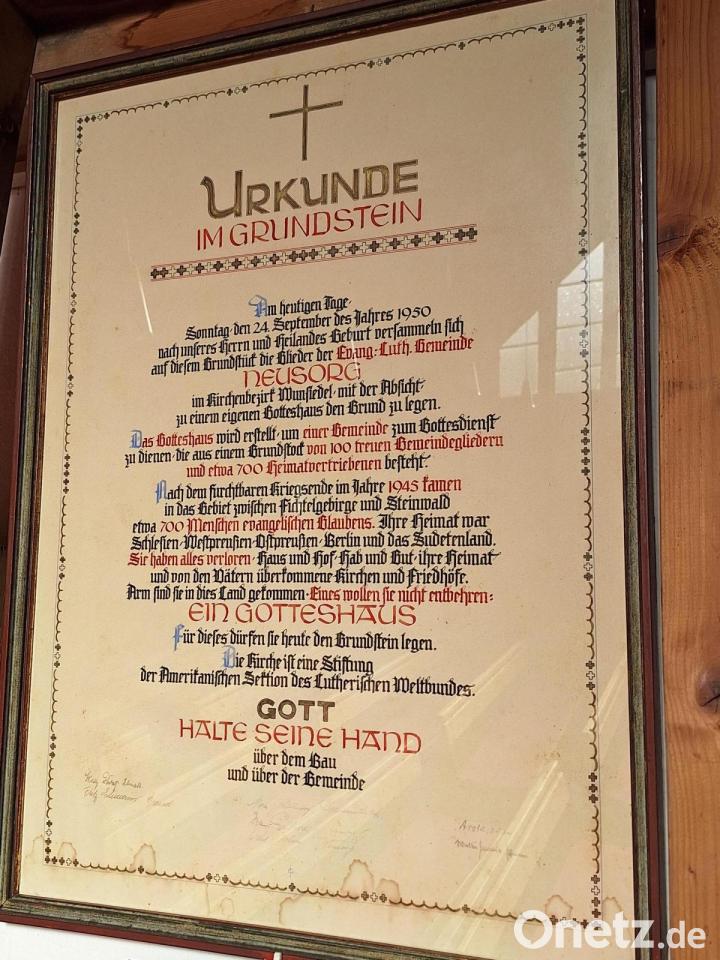 URKUNDE
IM GRUNDSTEIN
Am heutigen Tage·
Sonntag·den 24. September des Jahres 1950
nach unseres Herrn und Heilandes Geburt versammeln sich
auf diesem Grundstück die Glieder der Evang.-Luth. Gemeinde
NEUSORG
im Kirchenbezirk Wunsiedel·mit der Absicht·
zu einem eigenen Gotteshaus den Grund zu legen.
Das Gotteshaus wird erstellt·um einer Gemeinde zum Gottesdienst
zu dienen·die aus einem Grundstock von 100 treuen Gemeindegliedern
und etwa 700 Heimatvertriebenen besteht.
Nach dem furchtbaren Kriegsende im Jahre 1945 kamen
in das Gebiet zwischen Fichtelgebirge und Steinwald
etwa 700 Menschen evangelischen Glaubens. Ihre Heimat war
Schlesien·Westpreußen·Ostpreußen·Berlin und das Sudetenland.
Sie haben alles verloren·Haus und Hof·Hab und Gut·ihre Heimat
und von den Vätern überkommene Kirchen und Friedhöfe.
Arm sind sie in dies Land gekommen·Eines wollen sie nicht entbehren:
EIN GOTTESHAUS
Für dieses dürfen sie heute den Grundstein legen.
Die Kirche ist eine Stiftung
der Amerikanischen Sektion des Lutherischen Weltbundes.
GOTT
HALTE SEINE HAND
über dem Bau
und über der Gemeinde
Onetz.de